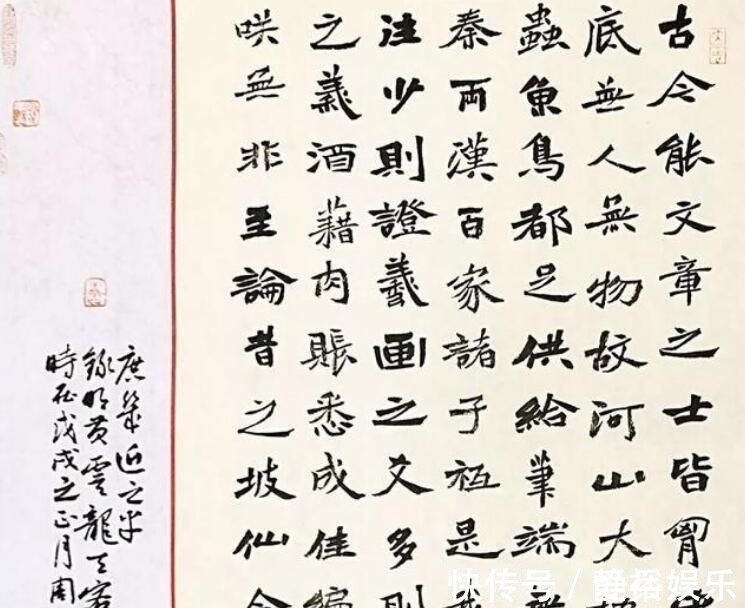 古今能文章之士皆胷
底無人無物故河山大
蟲魚鳥都足供給筆端
秦兩漢百家諸子祇是
注少則證羲画之爻多則
之義酒藉肉賬悉成佳編
咲無非至論昔之坡仙今
庶幾近之
錄明黄雲龍
時在戊戌之正月周
快传号／静裕娱乐